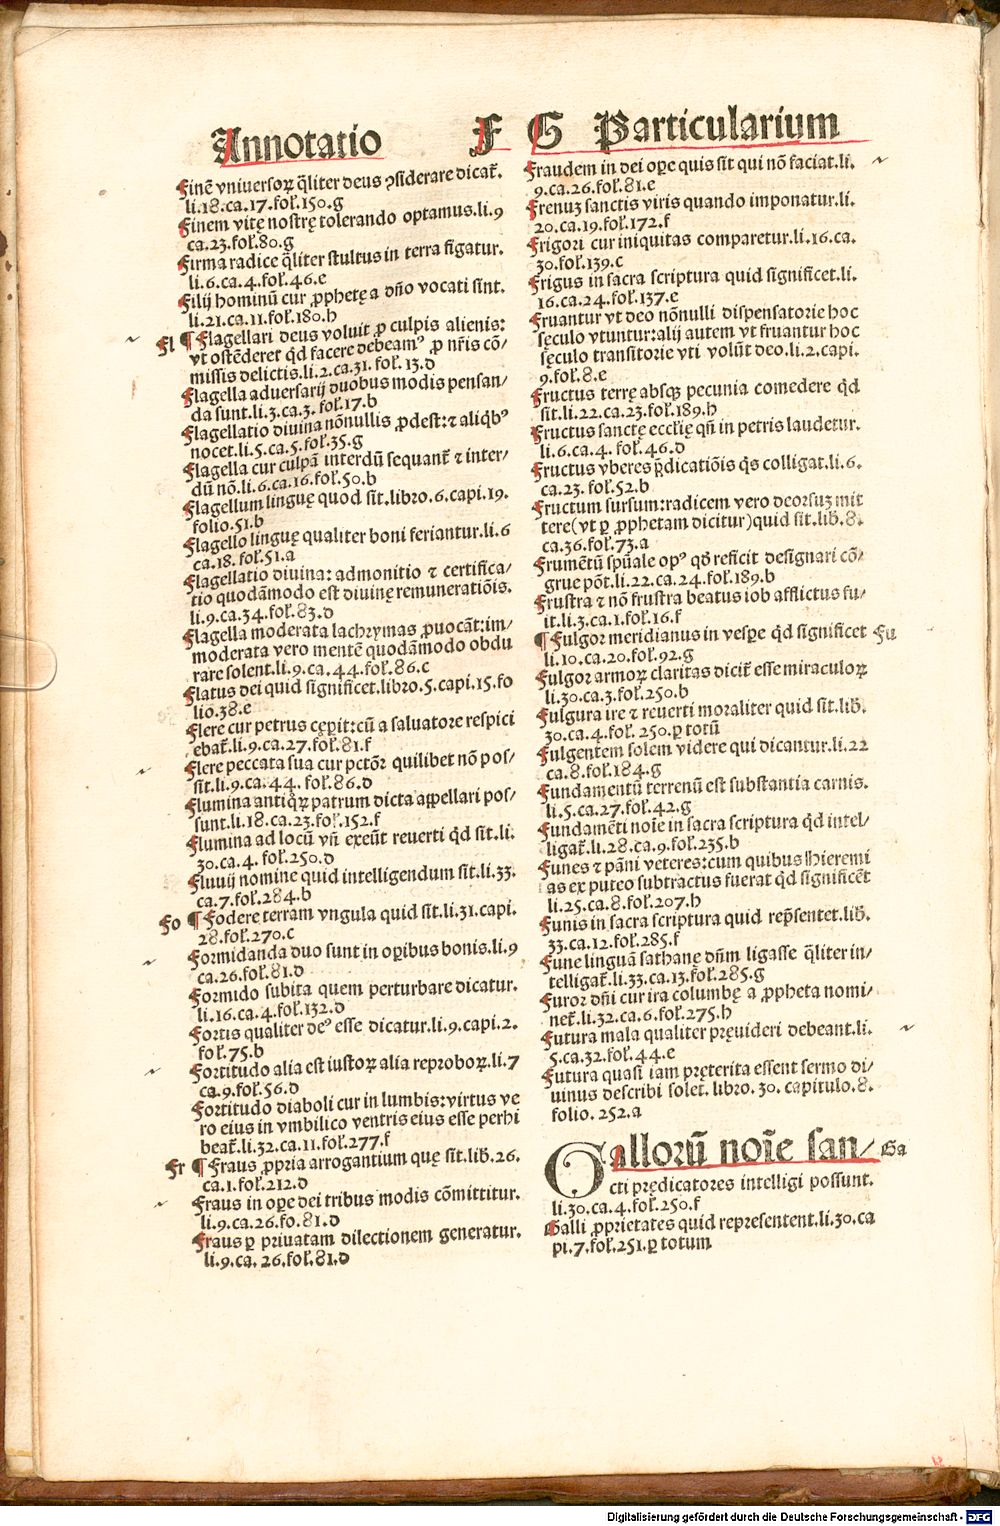 Annotatio F G Particularium
Finē vniuersoꝝ q̄liter deus ↄsiderare dicat᷑.
li.18.ca.17.fol̄.150.g
Finem vitę nostrę tolerando optamus.li.9
ca.23.fol̄.80.g
Firma radice q̄liter stultus in terra figatur.
li.6.ca.4.fol̄.46.e
Filij hominū cur ꝓphetę a dn̄o vocati sint.
li.21.ca.11.fol̄.180.h
Fl ¶ Flagellari deus voluit ꝓ culpis alienis:
vt ostēderet qd̄ facere debeamꝰ ꝓ nr̄is cō-
missis delictis.li.2.ca.31.fol̄.13.d
Flagella aduersarij duobus modis pensan/
da sunt.li.3.ca.3.fol̄.17.b
Flagellatio diuina nōnullis ꝓdest:⁊ aliqb̄ꝰ
nocet.li.5.ca.5.fol̄.35.g
Flagella cur culpā interdū sequant᷑ ⁊ inter-
dū nō.li.6.ca.16.fol̄.50.b
Flagellum linguę quod sit.libro.6.capi.19.
folio.51.b
Flagello linguę qualiter boni feriantur.li.6
ca.18.fol̄.51.a
Flagellatio diuina: admonitio ⁊ certifica-
tio quodāmodo est diuinę remuneratiōis.
li.9.ca.34.fol̄.83.d
Flagella moderata lachrymas ꝓuocāt:im/
moderata vero mentē quodāmodo obdu
rare solent.li.9.ca.44.fol̄.86.c
Flatus dei quid significet.libro.5.capi.15.fo
lio.38.e
Flere cur petrus cępit:cū a saluatore respici
ebat᷑.li.9.ca.27.fol̄.81.f
Flere peccata sua cur pctōr quilibet nō pos/
sit.li.9.ca.44.fol̄.86.d
Flumina antiq̄ꝝ patrum dicta appellari pos/
sunt.li.18.ca.23.fol̄.152.f
Flumina ad locū vn̄ exeūt reuerti qd̄ sit.li.
30.ca.4.fol̄.250.d
Fluuij nomine quid intelligendum sit.li.33.
ca.7.fol̄.284.b
Fo ¶ Fodere terram vngula quid sit.li.31.capi.
28.fol̄.270.c
Formidanda duo sunt in oꝑibus bonis.li.9
ca.26.fol̄.81.d
Formido subita quem perturbare dicatur.
li.16.ca.4.fol̄.132.d
Fortis qualiter deꝰ esse dicatur.li.9.capi.2.
fol̄.75.b
Fortitudo alia est iustoꝝ alia reproboꝝ.li.7
ca.9.fol̄.56.d
Fortitudo diaboli cur in lumbis:virtus ve
ro eius in vmbilico ventris eius esse perhi
beat᷑.li.32.ca.11.fol̄.277.f
Fr ¶ Fraus ꝓpria arrogantium quę sit.lib̄.26.
ca.1.fol̄.212.d
Fraus in oꝑe dei tribus modis cōmittitur.
li.9.ca.26.fo.81.d
Fraus ꝑ priuatam dilectionem generatur.
li.9.ca.26.fol̄.81.d
Fraudem in dei oꝑe quis sit qui nō faciat.li.
9.ca.26.fol̄.81.e
Frenuꝫ sanctis viris quando imponatur.li.
20.ca.19.fol̄.172.f
Frigori cur iniquitas comparetur.li.16.ca.
30.fol̄.139.c
Frigus in sacra scriptura quid significet.li.
16.ca.24.fol̄.137.e
Fruantur vt deo nōnulli dispensatorie hoc
sęculo vtuntur:alij autem vt fruantur hoc
sęculo transitorie vti volūt deo.li.2.capi.
9.fol̄.8.e
Fructus terrę absqꝫ pecunia comedere qd̄
sit.li.22.ca.23.fol̄.189.h
Fructus sanctę eccl̄ię qn̄ in petris laudetur.
li.6.ca.4.fol̄.46.d
Fructus vberes p̄dicatiōis q̄s colligat.li.6.
ca.23.fol̄.52.b
Fructum sursum:radicem vero deorsuꝫ mit
tere(vt ꝑ ꝓphetam dicitur)quid sit.lib̄.8.
ca.36.fol̄.73.a
Frumētū spūale opꝰ qd̄ reficit designari cō-
grue pōt.li.22.ca.24.fol̄.189.b
Frustra ⁊ nō frustra beatus iob afflictus fu/
it.li.3.ca.1.fol̄.16.f
¶ Fulgor meridianus in vesꝑe qd̄ significet Fu
li.10.ca.20.fol̄.92.g
Fulgor armoꝝ claritas dicit᷑ esse miraculoꝝ
li.30.ca.3.fol̄.250.b
Fulgura ire ⁊ reuerti moraliter quid sit.lib̄.
30.ca.4.fol̄.250.ꝑ totū
Fulgentem solem videre qui dicantur.li.22
ca.8.fol̄.184.g
Fundamentū terrenū est substantia carnis.
li.5.ca.27.fol̄.42.g
Fundamēti noīe in sacra scriptura qd̄ intel/
ligat᷑.li.28.ca.9.fol̄.235.b
Funes ⁊ pāni veteres:cum quibus Hieremi
as ex puteo subtractus fuerat qd̄ significēt
li.25.ca.8.fol̄.207.h
Funis in sacra scriptura quid rep̄sentet.lib̄.
33.ca.12.fol̄.285.f
Fune linguā sathanę dn̄m ligasse q̄liter in/
telligat᷑.li.33.ca.13.fol̄.285.g
Furor dn̄i cur ira columbę a ꝓpheta nomi/
net᷑.li.32.ca.6.fol̄.275.h
Futura mala qualiter pręuideri debeant.li.
5.ca.32.fol̄.44.e
Futura quasi iam pręterita essent sermo di/
uinus describi solet.libro.30.capitulo.8.
folio.252.a
Gallorū noīe san/ Ga
cti prędicatores intelligi possunt.
li.30.ca.4.fol̄.250.f
Galli ꝓprietates quid representent.li.30.ca
pi.7.fol̄.251.ꝑ totum
Digitalisierung gefördert durch die Deutsche Forschungsgemeinschaft - DFG